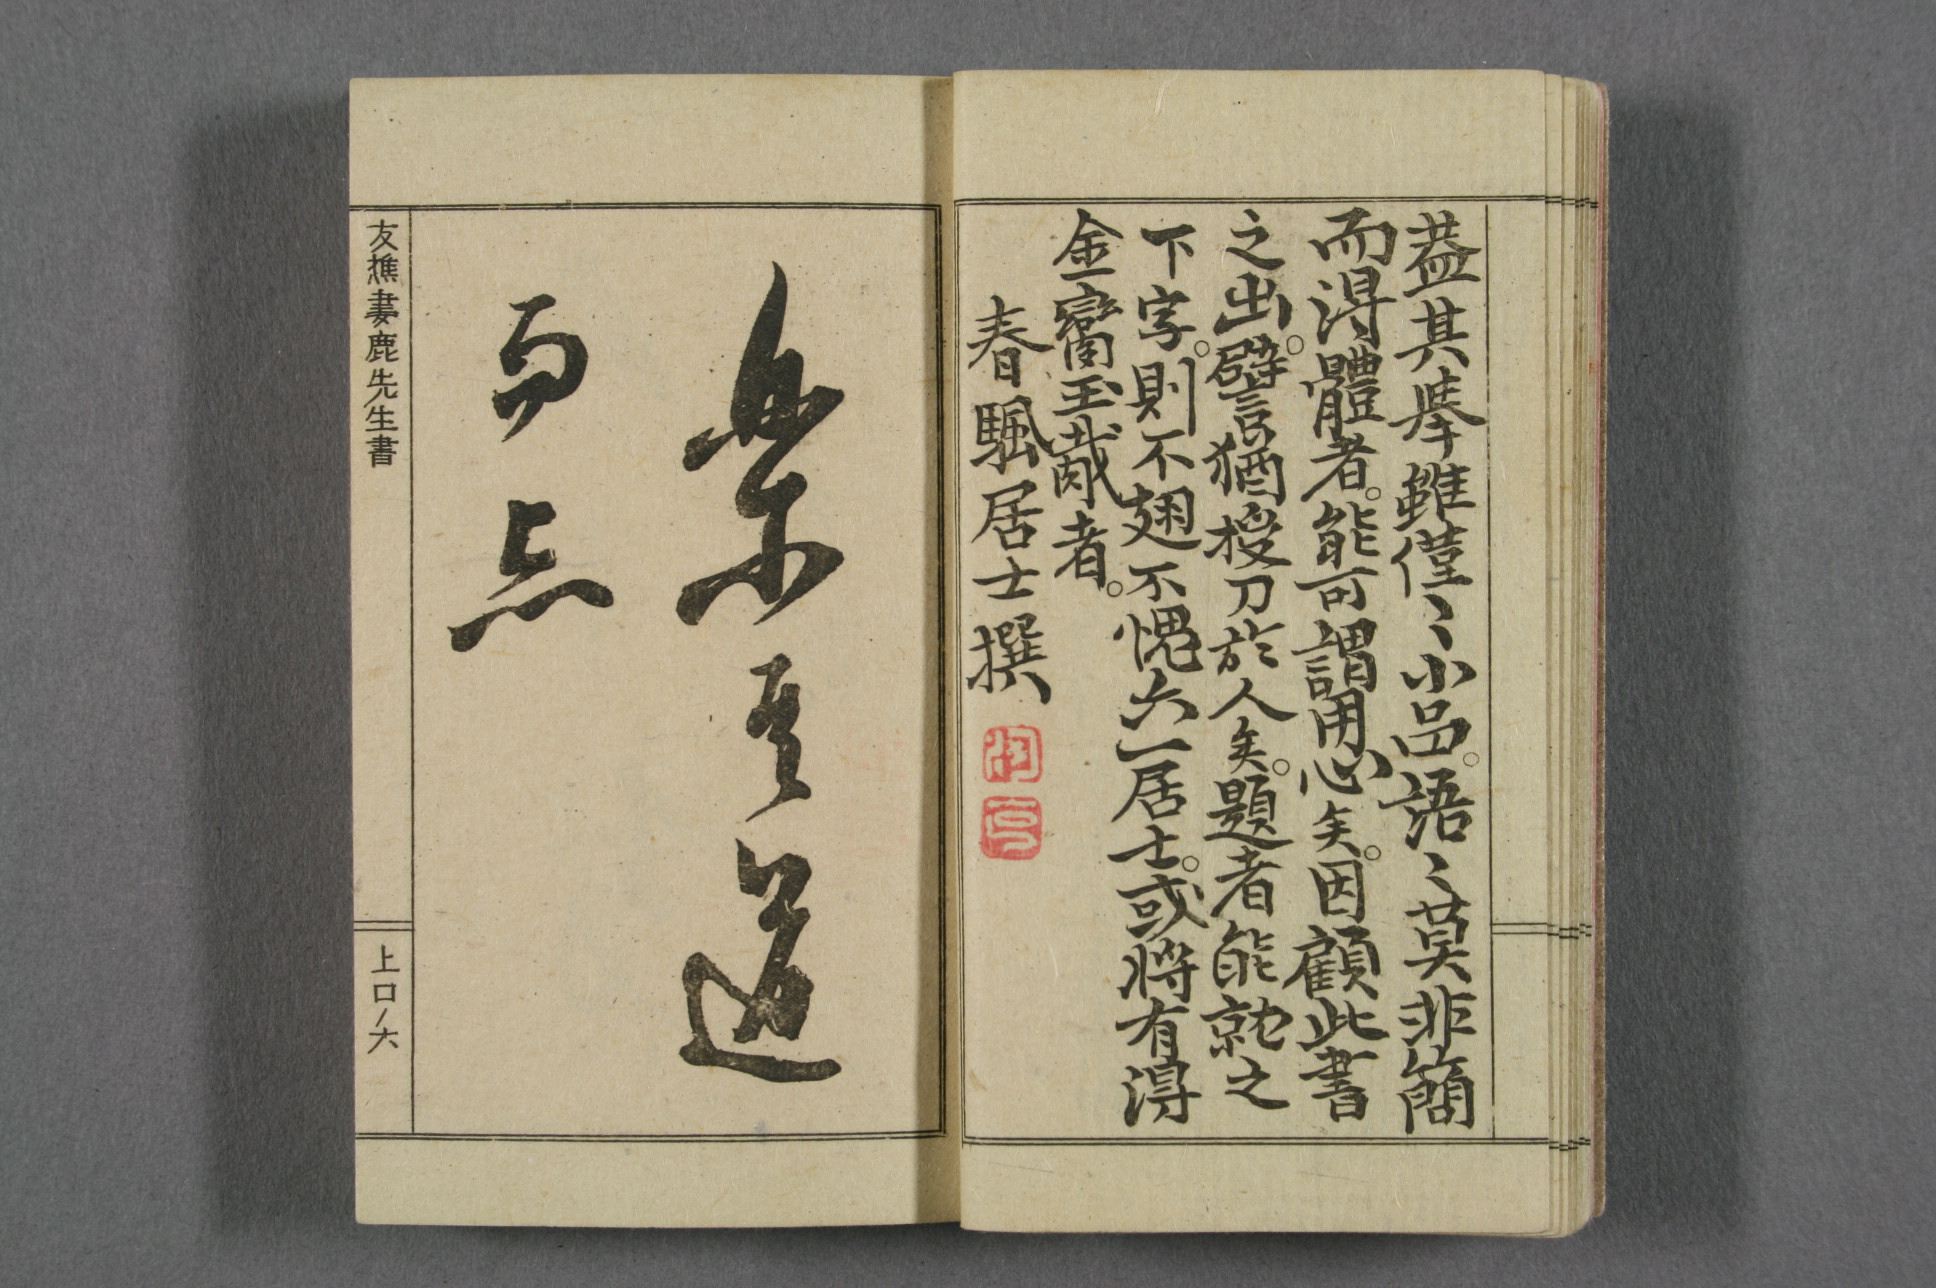 蓋其擧雖僅〻小品。語〻莫非簡
而得體者。能可謂用心矣。因顧此書
之出。譬猶授刀於人矣。題者能就之
下字。則不翅不愧六一居士。或將有得
金窗玉戴者。
春颿居士撰
樂其道
而忘
友樵妻鹿先生書
上口ノ六